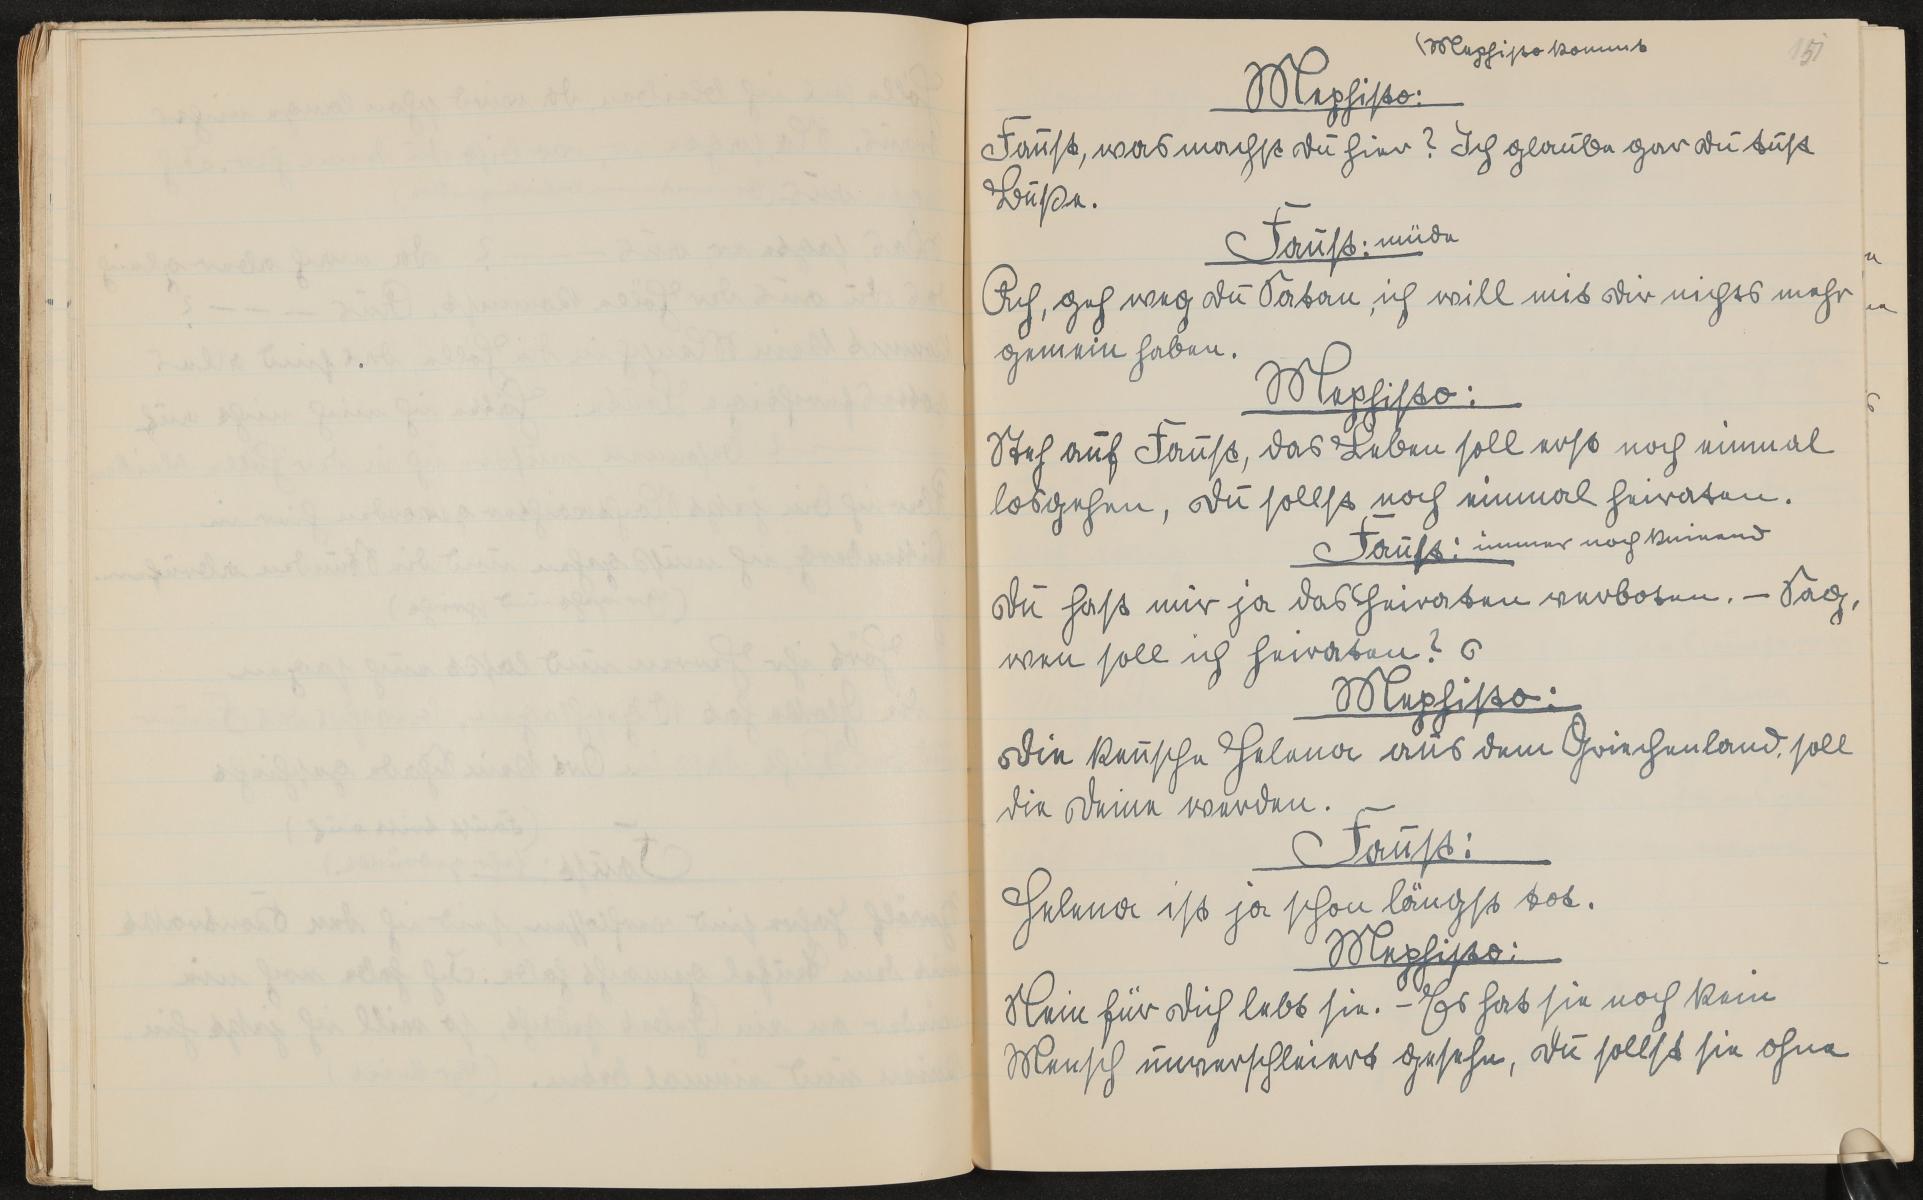 (Mephisto kommt
151
Mephisto:
Faust, was machst Du hier? Ich glaube gar Du tust
Buße.
Faust: müde
Ach, geh weg Du Satan, ich will mit Dir nichts mehr
gemein haben.
Mephisto:
Steh auf Faust, das Leben soll erst noch einmal
losgehen, Du sollst noch einmal heiraten.
Faust: immer noch knieend
Du hast mir ja das Heiraten verboten. – Sag,
wen soll ich heiraten?
Mephisto:
Die keusche Helena aus dem Griechenland, soll
die Deine werden.
Faust:
Helena ist ja schon längst tot.
Mephisto:
Nein für Dich lebt sie. – Es hat sie noch kein
Mensch unverschleiert gesehn, Du sollst sie ohne